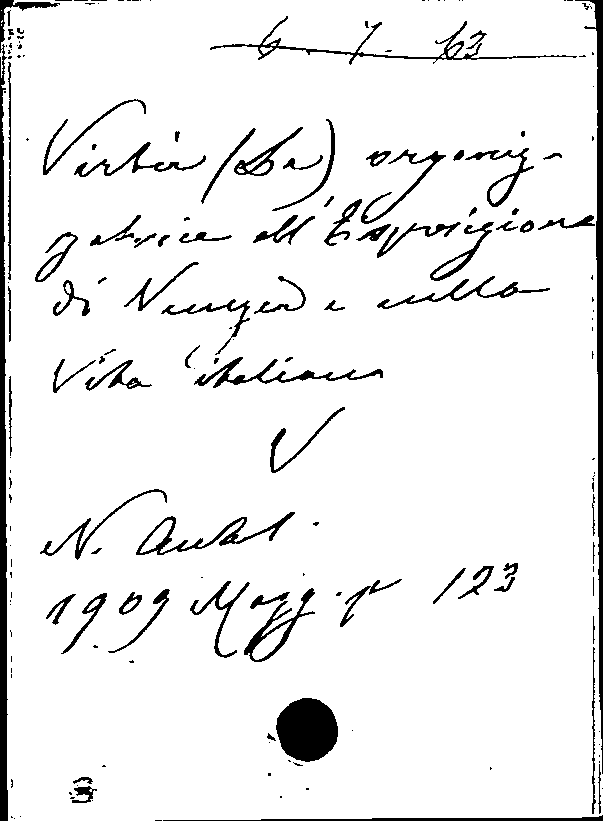 6. 7. 63
Virtù (La) organiz-
zatrice all'Esposizione
di Venezia e nella
Vita italiana
V
N. Antol.
1909 Magg. p. 123